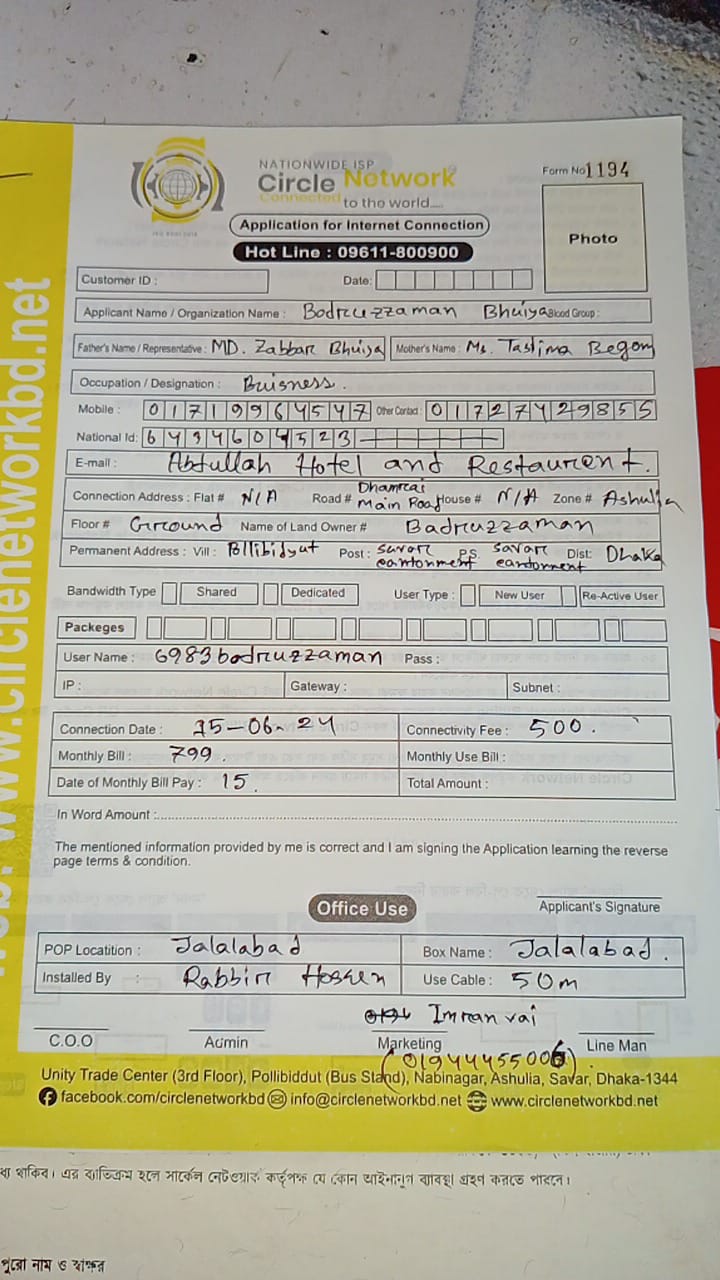 NATIONWIDE ISP
Circle Network
Connected to the world.....
Form No 1194
Application for Internet Connection
Hot Line : 09611-800900
Photo
Customer ID :
Date:
Applicant Name / Organization Name : Bodruzzaman Bhuiya Blood Group :
Father's Name / Representative : MD. Zabbar Bhuiya Mother's Name : Ms. Taslima Begom
Occupation / Designation : Buisness.
Mobile : 01719964547 Other Contact : 01727429855
National Id: 6434604523
E-mail : Abdullah Hotel and Restaurent.
Connection Address : Flat # N/A Road # Dhamrai Main Road House # N/A Zone # Ashulia
Floor # Ground Name of Land Owner # Badruzzaman
Permanent Address : Vill : Pollibidyut Post : savar cantonment P.S. savar cantonment Dist: Dhaka
Bandwidth Type Shared Dedicated User Type : New User Re-Active User
Packeges
User Name : 6983bodruzzaman Pass :
IP : Gateway : Subnet :
Connection Date : 15-06-24 Connectivity Fee : 500.
Monthly Bill : 799. Monthly Use Bill :
Date of Monthly Bill Pay : 15. Total Amount :
In Word Amount :
The mentioned information provided by me is correct and I am signing the Application learning the reverse
page terms & condition.
Office Use
Applicant's Signature
POP Locatition : Jalalabad Box Name : Jalalabad.
Installed By : Rabbir Hossen Use Cable : 50m
Imran vai
C.O.O Admin Marketing Line Man
(01944455006)
Unity Trade Center (3rd Floor), Pollibiddut (Bus Stand), Nabinagar, Ashulia, Savar, Dhaka-1344
facebook.com/circlenetworkbd info@circlenetworkbd.net www.circlenetworkbd.net
www.circlenetworkbd.net
থাকিব। এর ব্যতিক্রম হলে সার্কেল নেটওয়ার্ক কর্তৃপক্ষ যে কোন আইনানুগ ব্যাবস্থা গ্রহণ করতে পারবে।
পুরো নাম ও স্বাক্ষর